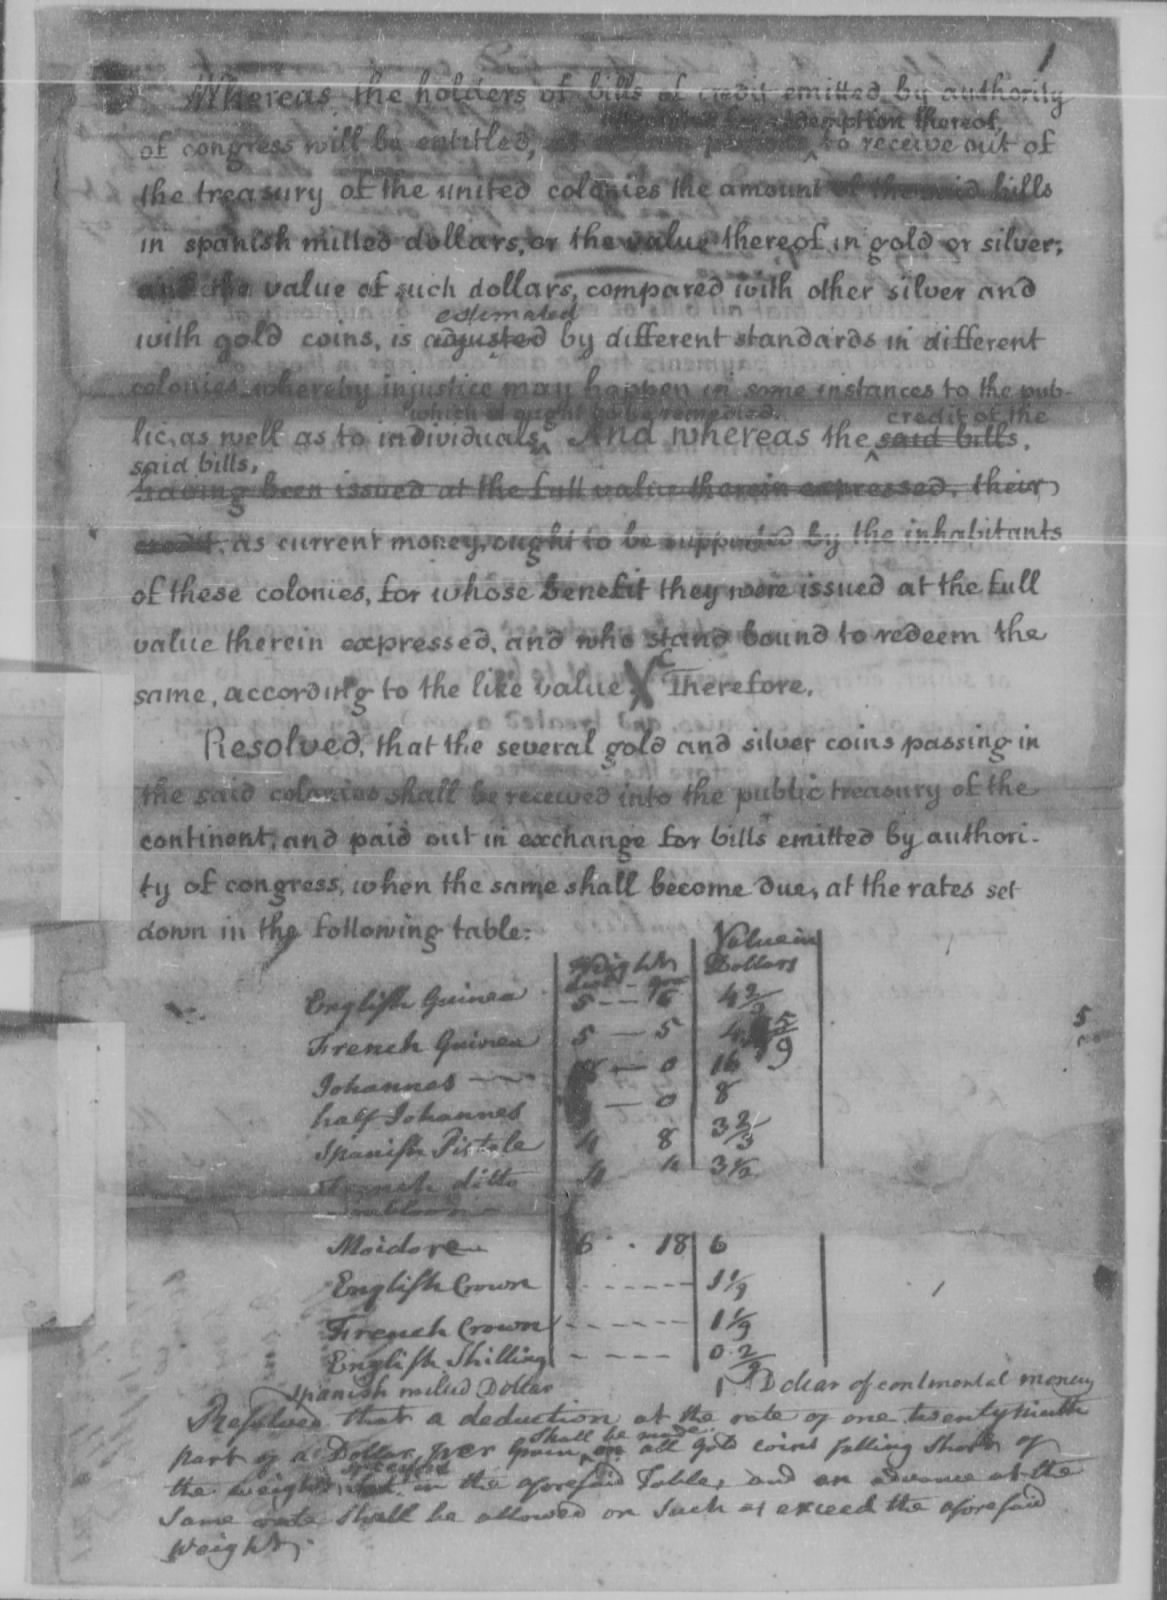 1
Whereas the holders of bills of credit emitted by authority
redemption thereof,
of congress will be entitled, to receive out of
the treasury of the united colonies the amount of the said bills
in spanish milled dollars, or the value thereof in gold or silver;
and the value of such dollars, compared with other silver and
estimated
with gold coins, is adjusted by different standards in different
colonies, whereby injustice may happen in some instances to the pub-
which ought to be remedied. credit of the
lic, as well as to individuals, And whereas the said bills,
said bills,
having been issued at the full value therein expressed, their
credit, as current money, ought to be supported by the inhabitants
of these colonies, for whose benefit they were issued at the full
value therein expressed, and who stand bound to redeem the
same, according to the like value X Therefore,
Resolved, that the several gold and silver coins passing in
the said colonies shall be received into the public treasury of the
continent, and paid out in exchange for bills emitted by authori-
ty of congress, when the same shall become due, at the rates set
down in the following table:
Weight Value in Dollars
English Guinea 5 — 6 4 2/3
French Guinea 5 — 5 4 5/9
Johannes — 0 16
half Johannes — 0 8
Spanish Pistole 4 8 3 2/3
French ditto 4 3 1/2
Moidore 6 . 18 6
English Crown - - - - - 1 1/9
French Crown - - - - - 1 1/9
English Shilling - - - - 0 2/9
Spanish milled Dollar 1 Dollar of continental money
Resolved that a deduction at the rate of one twenty ninth
shall be made
part of a Dollar per Grain, on all gold coins falling short of
the weight in the aforesaid Table, and an advance at the
same rate shall be allowed on such as exceed the aforesaid
weight.